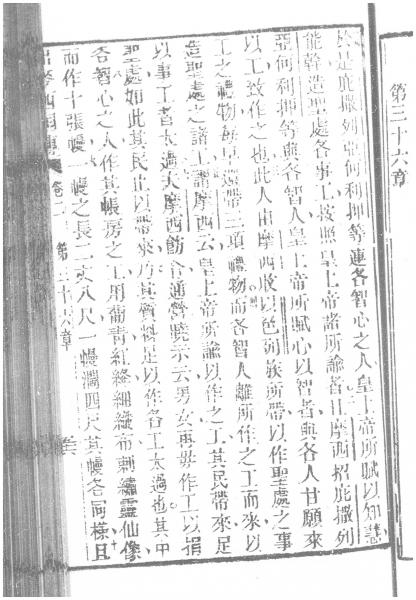 第三十六章
於是庇撒列亞何利押等連各智心之人皇上帝所賦以知識
能幹造聖處各事工按照皇上帝諸所諭者且摩西招庇撒列
亞何利押等與各智人皇上帝所賦心以智者與各人甘願來
以工致作之也此人由摩西收以色列族所帶以作聖處之事
工之禮物每早還帶三項禮物而各智人離所作之工而來以
造聖處之諸工謂摩西云皇上帝所諭以作之工其民帶來足
以事工者太過大摩西飭各通營曉示云男女再毋作工以捐
聖處如此其民止以帶來乃其質料是以作各工太過也其中
各智心之人作其帳房之工用葡青紅絳細織布刺繡靈仙像
而作十張幔一幔之長二丈八尺一幔濶四尺其幔各同樣且
出麥西國傳 卷二 第三十六章